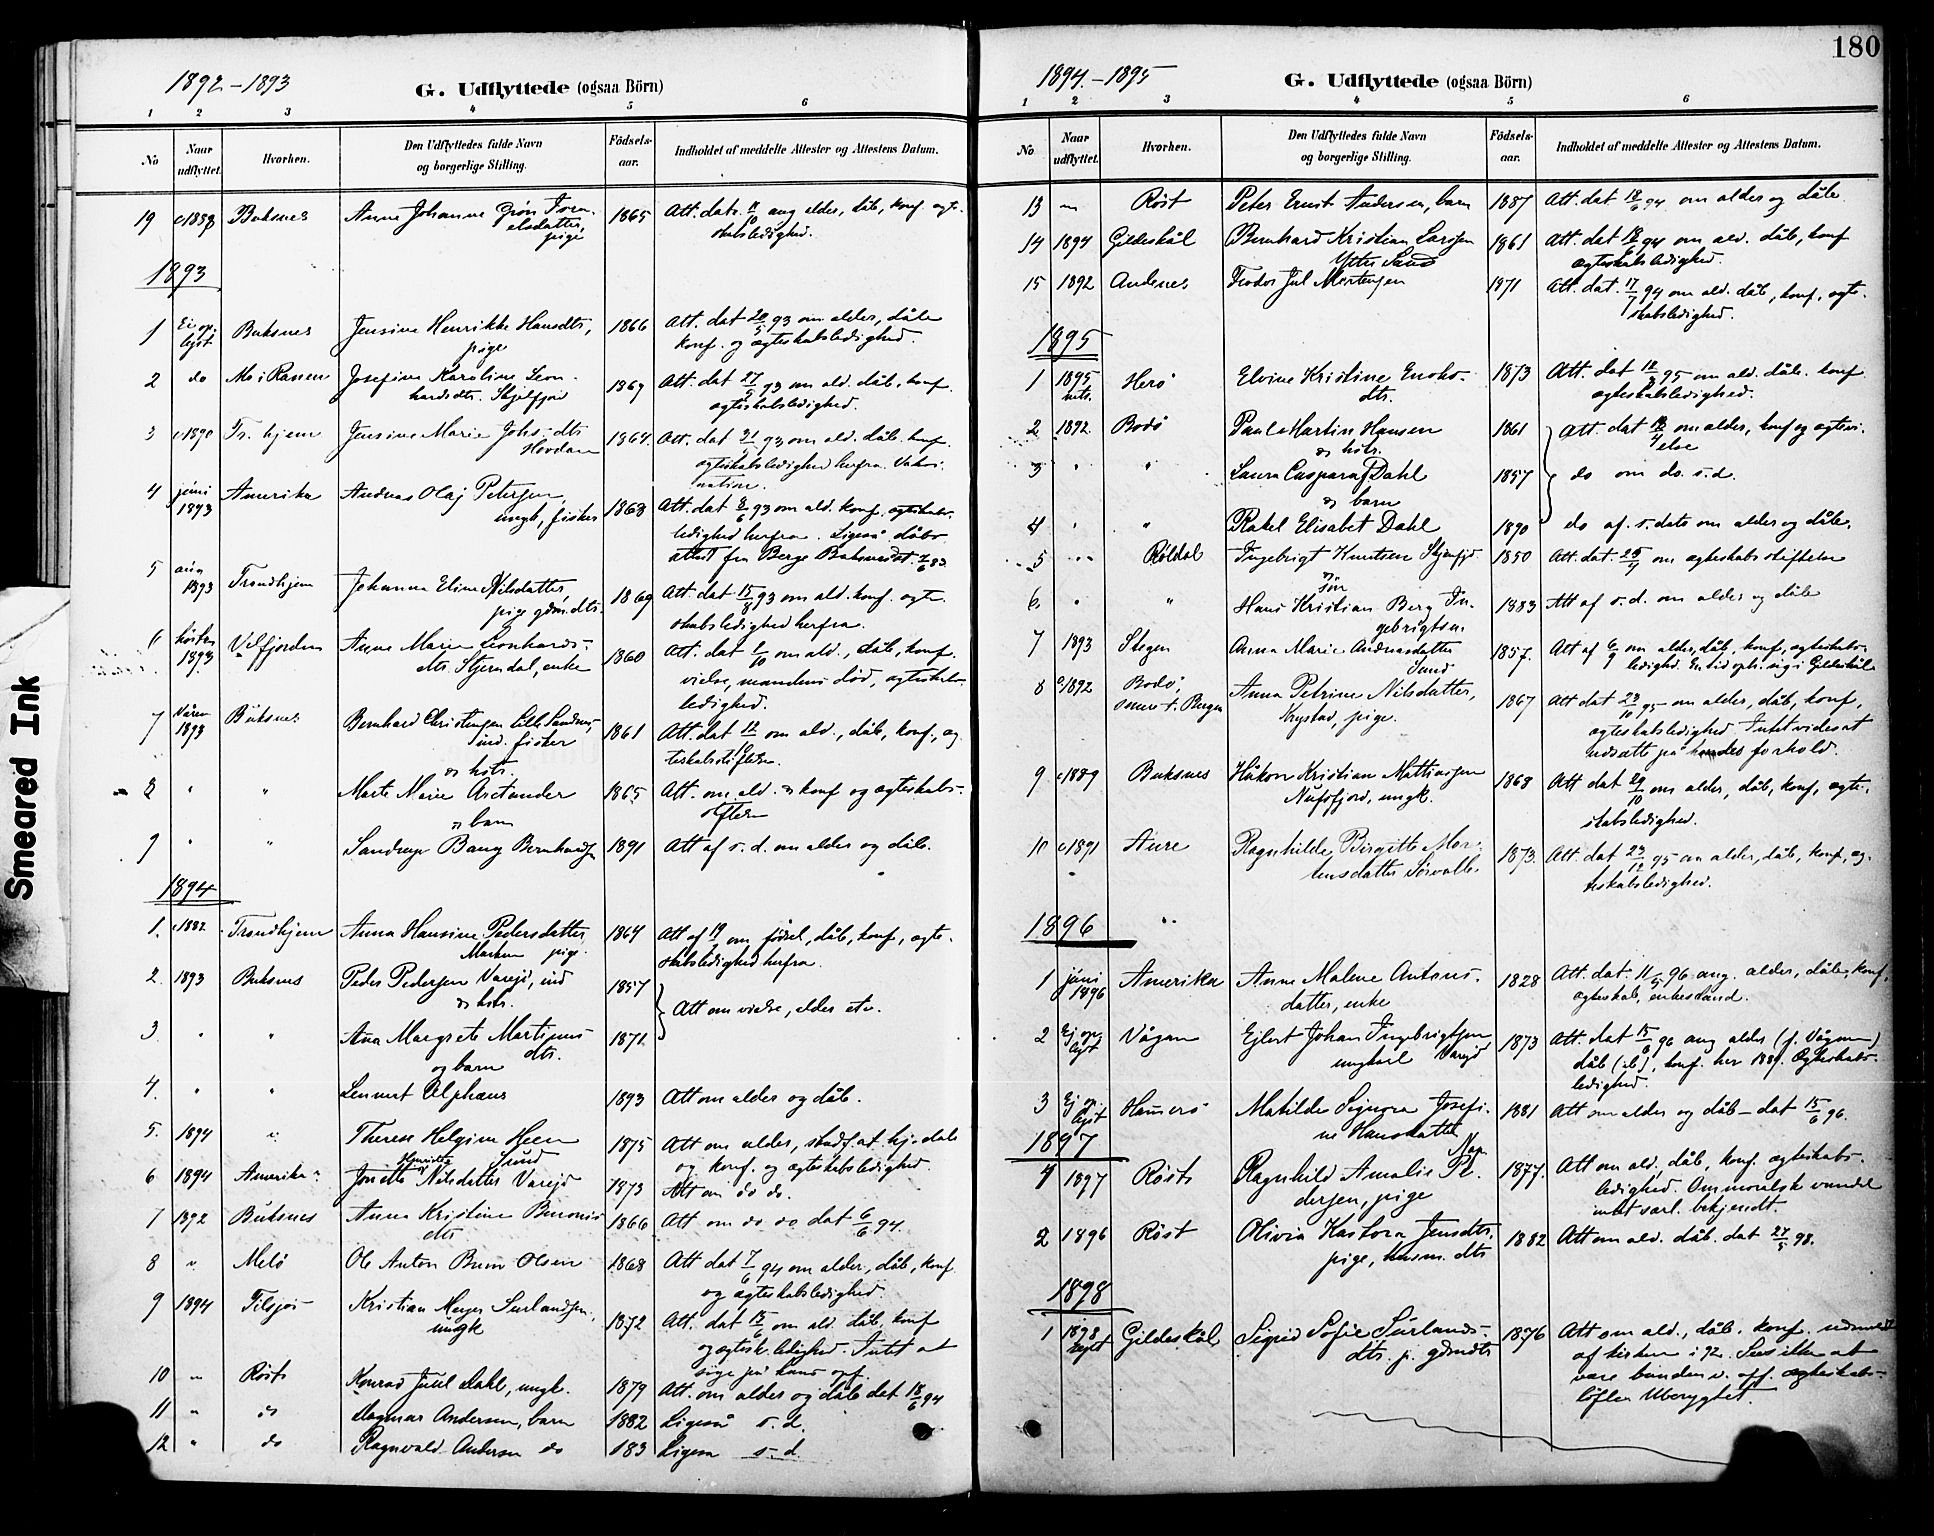 180
Smeared Ink
1892-1893
G. Udflyttede (ogsaa Börn)
1 2 3 4 5 6
No
Naar udflyttet.
Hvorhen.
Den Udflyttedes fulde Navn og borgerlige Stilling.
Födsels-aar.
Indholdet af meddelte Attester og Attestens Datum.
19 Buksnes Anne Johanne Grön 1865 Att. dat. ang alder, dåb, konf ægte-
elsdatter, skabsledighed.
pige
1893
1 Ej op- Buksnes Jensine Henrikke Hansdtr, 1866 Att. dat 20/5 93 om alder, dåb
lyst pige konf. og ægteskabsledighed.
2 do Mo i Ranen Josefine Karoline Leon- 1869 Att. dat 27/5 93 om ald. dåb, konf.
hardsdtr. Skjelfjord ægteskabsledighed.
3 1890 Tr. hjem Jensine Marie Johs. dtr 1864. Att. dat 21/ 93 om ald. dåb. konf
ægteskabsledighed herfra. Vakci-
nation.
4 juni Amerika Andreas Olaj Petersen 1868 Att. dat 2/6 93 om ald. konf. ægteskabs-
1893 ungk, fisker ledighed herfra. Ligeså dåbs-
attest fra Berge Buksnes dat. 7/6 83.
5 aug Trondhjem Johanna Eline Nilsdatter, 1869 Att. dat 15/8 93 om ald. konf. ægte-
1893 pige gdm. dtr. skabsledighed herfra.
6 høsten Velfjorden Anne Marie Leonhards- 1860 Att. dat 1/10 om ald., dåb, konf.
1893 dtr Stjerndal, enke vielse, mandens død, ægteskabs-
ledighed.
7 Våren Buksnes Bernhard Christensen Lille Sandnes, 1861 Att. dat 12/ om ald., dåb, konf, æg
1893 ind. fisker teskabsstiftelse.
og hstr.
8 " " Marte Marie Arctander 1865 Att. om ald. og konf og ægteskabs-
og barn stiftelse
9 " " Bang Bernhardsen 1891 Att af s. d. om alder og dåb.
1894
1. 1882 Trondhjem Anna Hansine Pedersdatter 1864 Att af om fødsel, dåb, konf, ægte-
pige. skabsledighed herfra.
2. 1893 Buksnes Peder Pedersen Varejd, ind 1857
og hstr. Att om vielse, alder etc.
3 " " Ana Margrete Martinus- 1871
dtr.
og barn
4. " " Lennert Alphæus 1893 Att om alder og dåb.
5. 1894 " Therese Helgine Heen 1875 Att om alder, stadf. at hj. dåb
Sund og konf. og ægteskabsledighed.
6 1894 Amerika Jonette Henriette Nilsdatter Varejd 1873 Att om do do.
7 1892 Buksnes Anna Kristine Benonis 1866 Att om do do dat 6/6 94.
dtr
8 " Melö Ole Anton Brun Olsen 1868 Att dat 7/6 94 om alder, dåb, konf
og ægteskabsledighed
9 1894 Tilsjös Kristian Meyer Surlandsen, 1872 Att. dat 12/6 om ald. dåb, konf
ungk og ægtesk. ledighed. Intet at
sige på hans opf.
10 " Röst Konrad Juul Dahl, ungk. 1879 Att. om alder og dåb dat 18/6 94
11 " do Dagmar Andersen, barn 1882 Ligeså s. d.
12 " do Ragnvald Andersen do 183 Ligesa s. d.
1894.-1895
G. Udflyttede (ogsaa Börn)
1 2 3 4 5 6
No
Naar udflyttet.
Hvorhen.
Den Udflyttedes fulde Navn og borgerlige Stilling.
Födsels-aar.
Indholdet af meddelte Attester og Attestens Datum.
13 " Röst Peter Ernst Andersen, barn 1887 Att. dat 18/6 94 om alder og dåb
14 1894 Gildeskål Bernhard Kristian Larsen 1861 Att. dat 18/6 94 om ald. dåb, konf
Ytter Sund ægteskabsledighed.
15 1892 Andenes Teodor Jul Mortensen 1871 Att. dat. 17/7 94 om ald. dåb, konf, ægte-
skabsledighed.
1895
1 1895 Herö Elvine Kristine Enoks- 1873 Att. dat 95 om ald. dåb. konf
dtr. ægteskabsledighed.
2 1892 Bodö Paul Martin Hansen 1861 Att. dat 18/4 om alder, konf og ægtevi-
og hstr. else
3 " " Laura Caspara Dahl 1857 do om do. s. d.
og barn
4 " " Rakel Elisabet Dahl 1890 do af s. dato om alder og dåb.
5 " Röldal Ingebrigt Knutsen 1850 Att. dat. 25/4 om ægteskabsstiftelse
og sön
6. " " Hans Kristian Berg In- 1883 Att af s. d. om alder og dåb
gebrigtsn.
7 1893 Stegen Anna Marie Andreasdatter 1857. Att af 6/9 om alder, dåb, konf, ægteskabs-
Sund ledighed. En tid oph. sig i Gildeskål
8 1892 Bodö, Anna Petrine Nilsdatter, 1867 Att dat 23/10 95 om alder, dåb, konf,
senere t. Bergen Krystad, pige. ægteskabsledighed. Intet vides at
udsætte på hendes forhold.
9 1889 Buksnes Håkon Kristian Mattiassen 1868 Att dat 29/10 om alder, dåb, konf, ægte-
Nufsfjord, ungk. skabsledighed.
10 1891 Aure Ragnhilde Birgitte Mor- 1873. Att. dat 23/12 95 om alder, dåb, konf, æg-
tensdatter teskabsledighed.
1896
1 juni Amerika Anne Malene Antons- 1828 Att. dat. 11/5 96 ang. alder, dåb, konf,
1896 datter, enke ægteskab, enkestand.
2 Ej op- Vågan Ejlert Johan Ingebrigtsen 1873 Att. dat 15/6 96 ang alder (f. Vågan)
lyst ungkarl Varejd dåb (ib), konf. her 1889. Ægteskabs-
ledighed.
3 Ej op- Hamerö Matilde Signora Josefi- 1881 Att om alder og dåb - dat 15/6 96.
lyst ne Hansdatter
1897
1 1897 Röst Ragnhild Amalie Pe- 1877. Att om ald, dåb, konf. ægteskabs-
dersen, pige Nap ledighed. Om moralsk vandel
intet særl. bekjendt.
2 1896 Röst Olivia Kastora Jensdtr. 1882 Att om ald. dåb. dat 27/5 98.
pige, husm. dtr
1898
1 1898 Gildeskål Sigrid Sofie Surlands- 1876 Att om ald., dåb. konf. udmeldt
dtr. p. gdmdtr af kirken i 92. Sees ikke at
være bunden v. off. ægteskabs-
löfte. Uberygtet